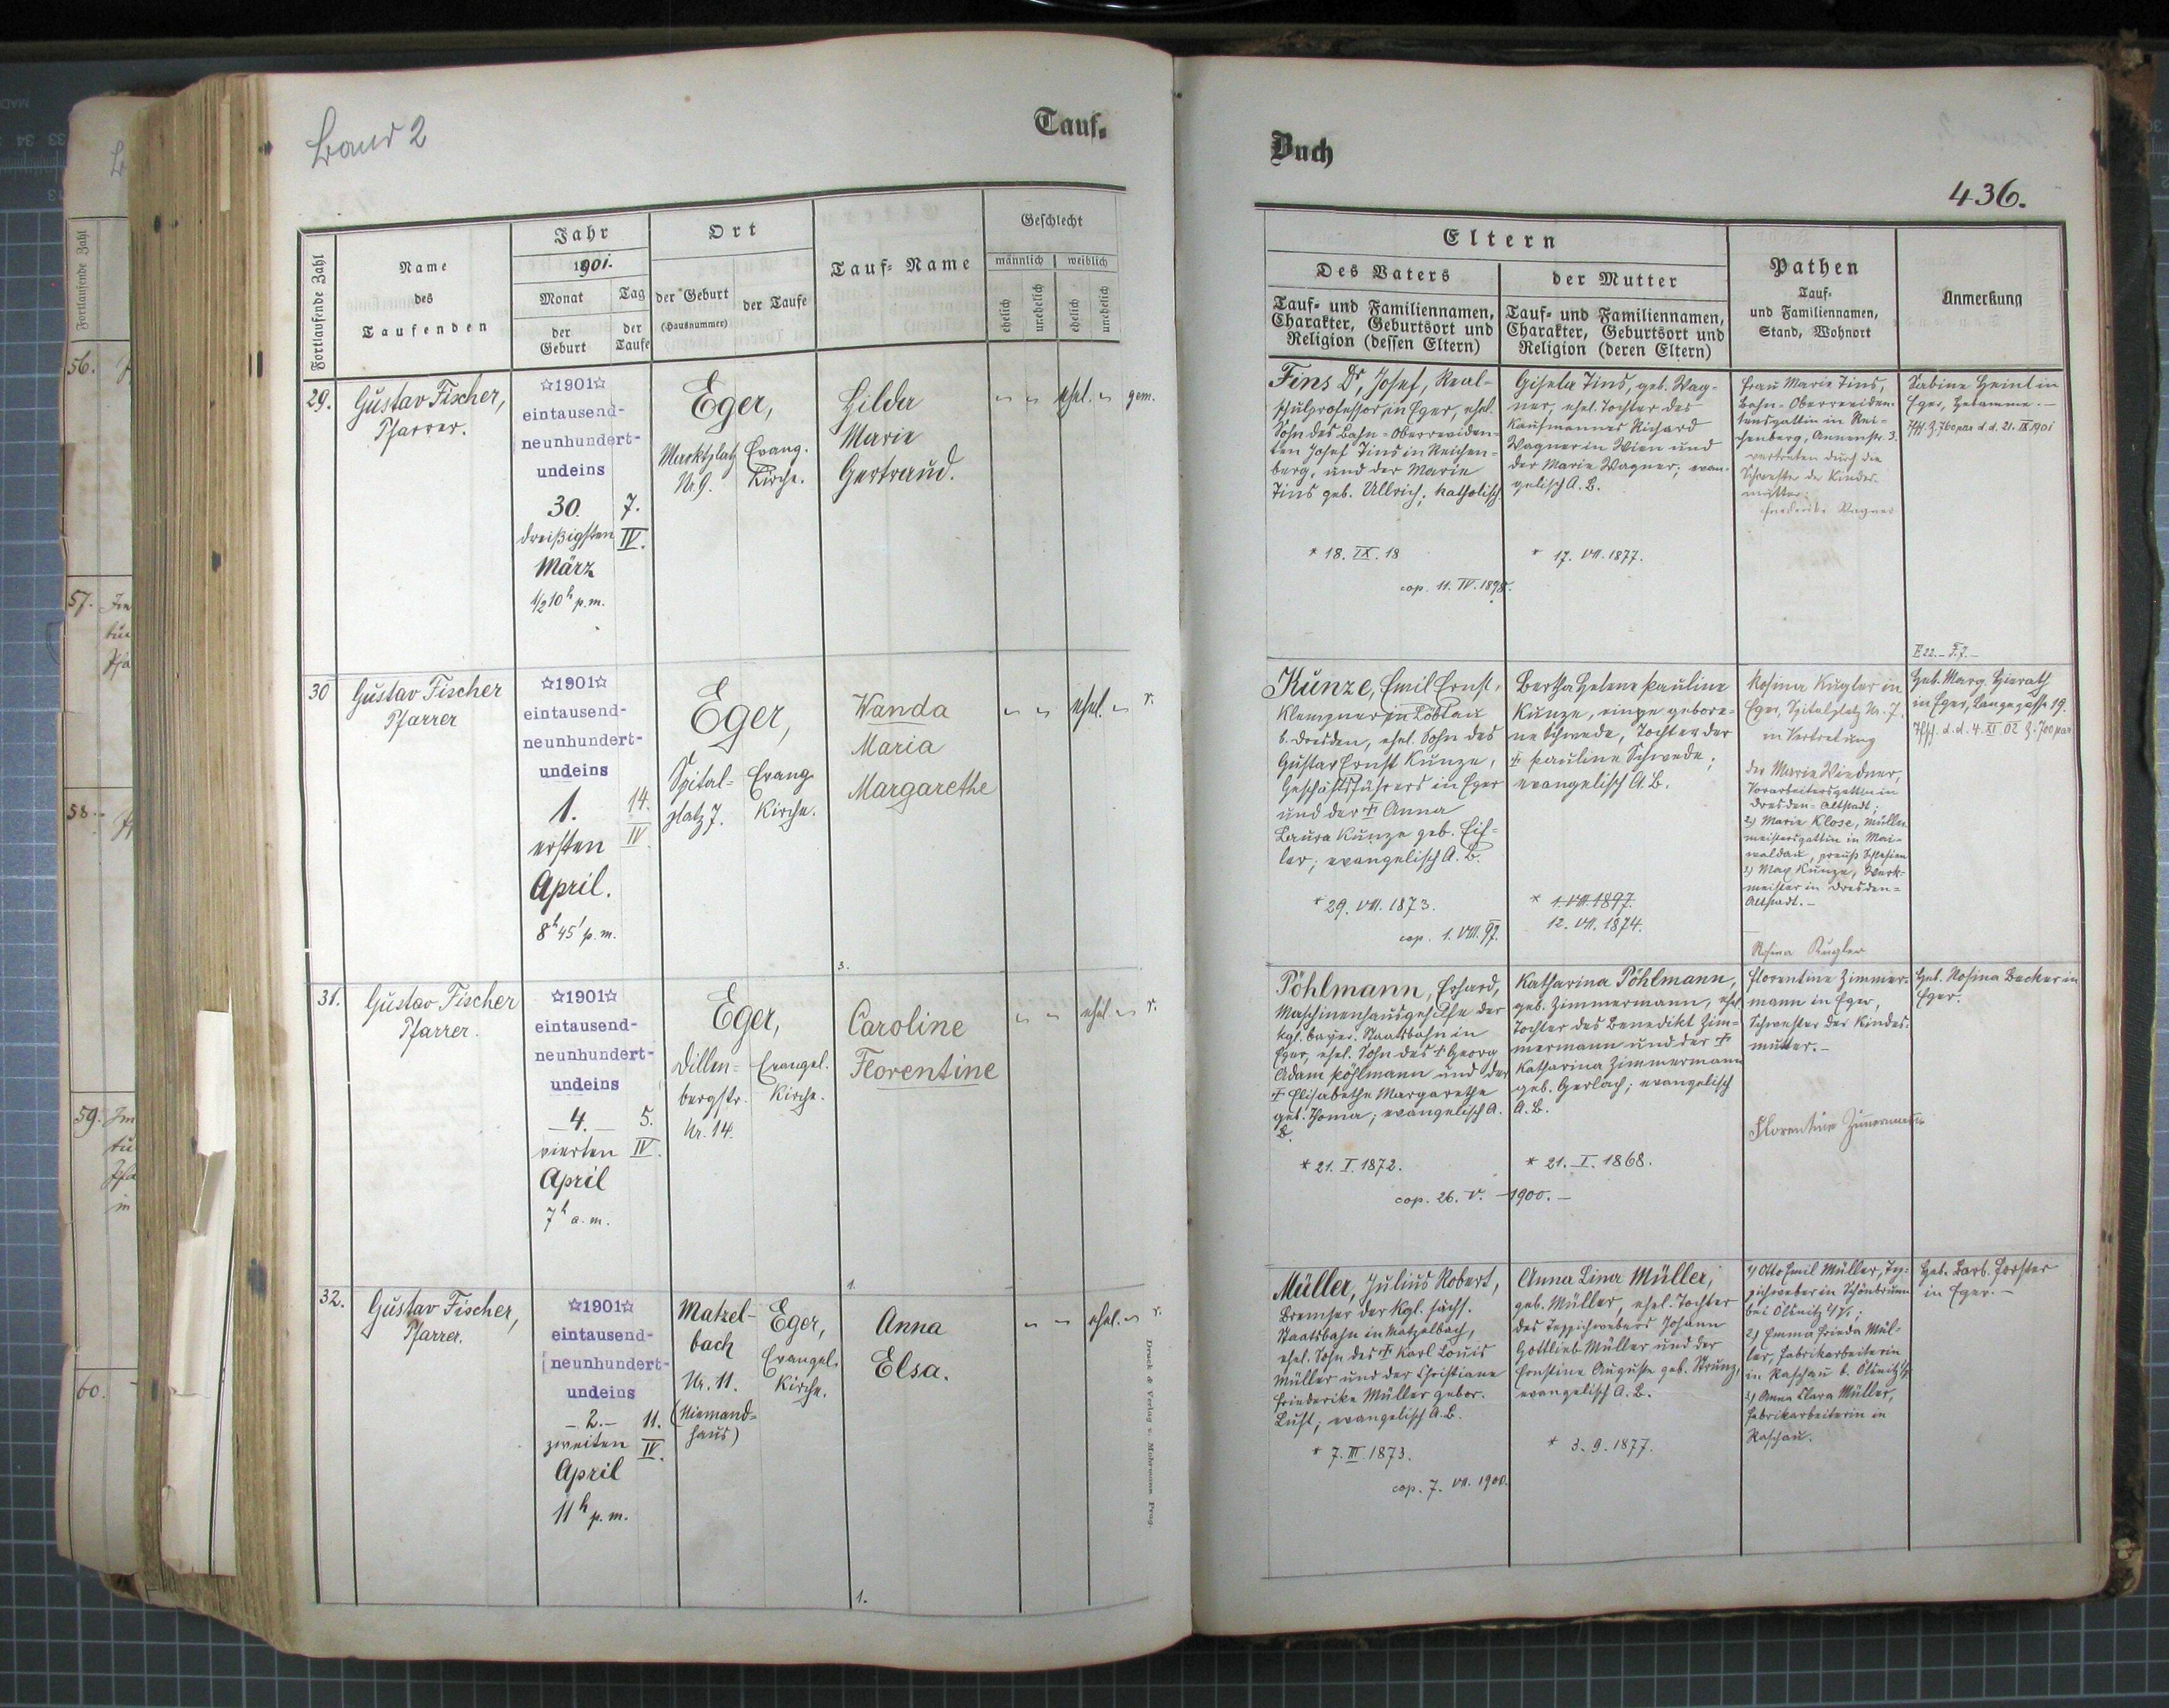 Band 2
Tauf-
Fortlaufende Zahl
Name
des
Taufenden
Jahr
1901.
Monat
der
Geburt
Tag
der
Taufe
Ort
der Geburt
(Hausnummer)
der Taufe
Tauf-Name
Geschlecht
männlich
weiblich
ehelich
unehelich
ehelich
unehelich
29.
Gustav Fischer,
Pfarrer.
☆1901☆
eintausend-
neunhundert-
undeins
30.
dreißigsten
März
1/2 10h p.m.
7.
IV.
Eger,
Marktplatz
Nr. 9.
Evang.
Kirche.
Hilda
Marie
Gertraud.
" " ehel. " gem.
30
Gustav Fischer
Pfarrer
☆1901☆
eintausend-
neunhundert-
undeins
1.
ersten
April.
8h 45' p.m.
14.
IV
Eger,
Spital-
platz 7.
Evang
Kirche.
Wanda
Maria
Margarethe
3.
" " ehel. " r.
31.
Gustav Fischer
Pfarrer.
☆1901☆
eintausend-
neunhundert-
undeins
4.
vierten
April
7h a.m.
5.
IV.
Eger,
Dillen-
bergstr.
Nr. 14.
Evangel.
Kirche.
Caroline
Florentine
1.
" " ehel. " r.
32.
Gustav Fischer,
Pfarrer.
☆1901☆
eintausend-
neunhundert-
undeins
- 2. -
zweiten
April
11h p.m.
11.
IV.
Matzel-
bach
Nr. 11.
(Niemand-
haus)
Eger,
Evangel.
Kirche.
Anna
Elsa.
1.
" " ehel. " r.
Druck & Verlag v. Mohrmann Prag.
Buch
436.
Eltern
Des Vaters
Tauf- und Familiennamen,
Charakter, Geburtsort und
Religion (dessen Eltern)
der Mutter
Tauf- und Familiennamen,
Charakter, Geburtsort und
Religion (deren Eltern)
Pathen
Tauf-
und Familiennamen,
Stand, Wohnort
Anmerkung
Tins Dr, Josef, Real-
schulprofessor in Eger, ehel.
Sohn des Bahn-Oberreviden-
ten Josef Tins in Reichen-
berg, und der Marie
Tins geb. Ullrich; katholisch.
* 18. IX. 18
cop. 11. IV. 1898.
Gisela Tins, geb. Wag-
ner, ehel. Tochter des
Kaufmannes Richard
Wagner in Wien und
der Marie Wagner; evan-
gelisch A. B.
* 17. VII. 1877.
Frau Marie Tins,
Bahn-Oberreviden-
tensgattin in Rei-
chenberg, Annenstr. 3.
vertreten durch die
Schwester der Kindes-
mutter:
Friederike Wagner
Sabine Heinl in
Eger, Hebamme. -
Z. 760 d.d. 21. IX 1901
Kunze, Emil Ernst,
Klempner in Löbtau
b. Dresden, ehel. Sohn des
Gustav Ernst Kunze,
Geschäftsführers in Eger
und der † Anna
Laura Kunze geb. Eif-
ler; evangelisch A. B.
* 29. VII. 1873.
cop. 1. VIII. 97.
Bertha Helene Pauline
Kunze, eine gebore-
ne Schwede, Tochter der
† Pauline Schwede;
evangelisch A. B.
* 1. VII. 1897.
12. VII. 1874.
Rosina Kugler in
Eger, Spitalplatz Nr. 7.
in Vertretung
der Marie Wiedner,
Vorarbeitersgattin in
Dresden-Altstadt;
2) Marie Klose, Müller-
meistersgattin in Mai-
waldau, preuß Schlesien
3) Max Kunze, Werk-
meister in Dresden-
Altstadt. -
Rosina Kugler
Heb. Marg. Hierath
in Eger, Langegasse 19.
d.d. 4. XI 02 Z. 700
Pöhlmann, Erhard,
Maschinenhausgehilfe der
kgl. bayer. Staatsbahn in
Eger, ehel. Sohn des † Georg
Adam Pöhlmann und der
† Elisabetha Margaretha
geb. Thoma; evangelisch A.
B.
* 21. I. 1872.
cop. 26. V. - 1900. -
Katharina Pöhlmann,
geb. Zimmermann, ehel.
Tochter des Benedikt Zim-
mermann und der †
Katharina Zimmermann
geb. Gerlach; evangelisch
A. B.
* 21. I. 1868.
Florentine Zimmer-
mann in Eger,
Schwester der Kindes-
mutter. -
Florentine Zimmermann
Heb. Rosina Becker in
Eger.
Müller, Julius Robert,
Bremser der kgl. sächs.
Staatsbahn in Matzelbach,
ehel. Sohn des † Karl Louis
Müller und der Christiane
Friederike Müller gebor.
Lust; evangelisch A. B.
* 7. III. 1873.
cop. 7. VII. 1900.
Anna Lina Müller,
geb. Müller, ehel. Tochter
des Teppichwebers Johann
Gottlieb Müller und der
Ernstine Auguste geb. Strunz,
evangelisch A. B.
* 3. 9. 1877.
1) Otto Emil Müller, Tep-
pichweber in Schönbrunn
bei Ölsnitz i/V.;
2) Emma Frieda Mül-
ler, Fabrikarbeiterin
in Raschau b. Ölsnitz i/V
3) Anna Clara Müller,
Fabrikarbeiterin in
Raschau.
Heb. Barb. Forster
in Eger. -
56.
57.
58.
59.
60.